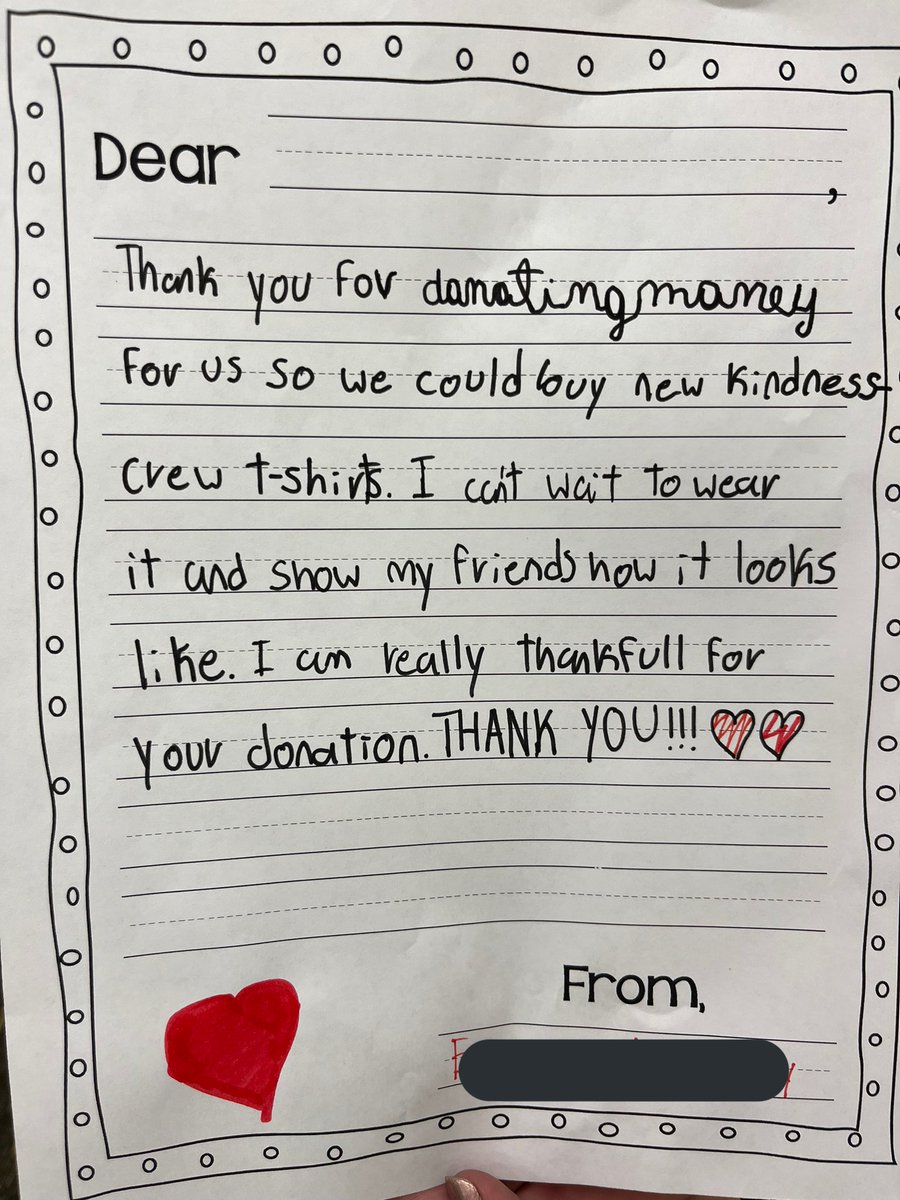 Dear ,
Thank you for danating maney
for us so we could buy new kindness
crew t-shirts. I can't wait to wear
it and show my friends how it looks
like. I am really thankfull for
your donation. THANK YOU!!!
From,